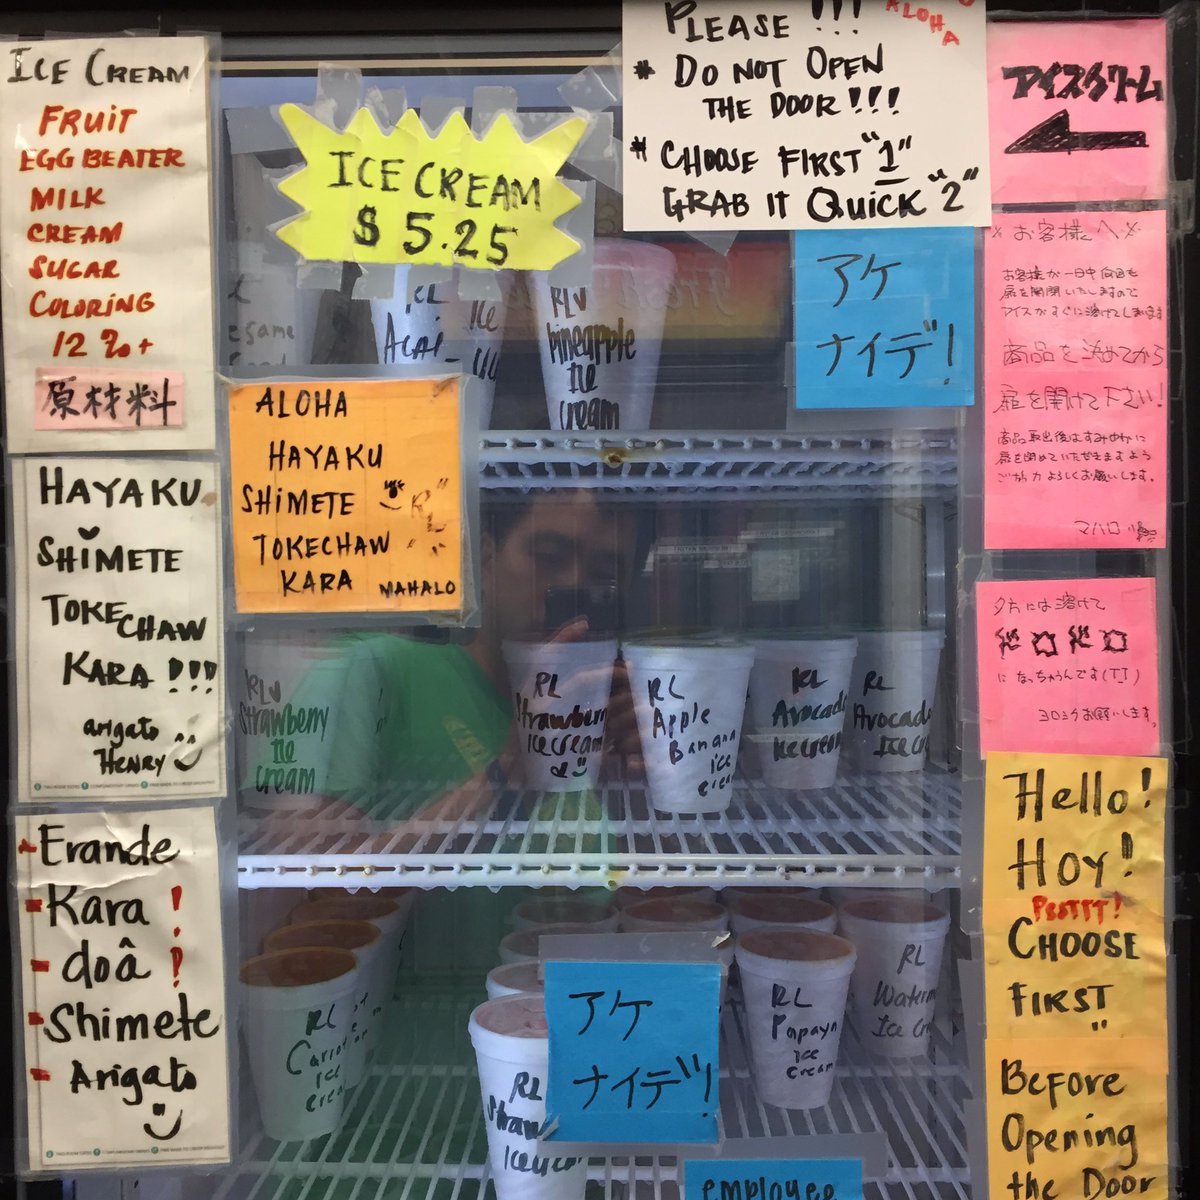 ICE CREAM
FRUIT
EGG BEATER
MILK
CREAM
SUGAR
COLORING
12 %+
原材料
HAYAKU
SHIMETE
TOKE
CHAW
KARA !!!
arigato
HENRY
Erande
Kara !
doâ !
Shimete
Arigato
ICE CREAM
$ 5.25
ALOHA
HAYAKU
SHIMETE
TOKECHAW
KARA
MAHALO
PLEASE !!!
ALOHA
* DO NOT OPEN
THE DOOR!!!
* CHOOSE FIRST "1"
GRAB IT QUICK "2"
アケ
ナイデ!
アイスクリーム
※お客様へ※
お客様が一日中何回も
扉を開閉いたしますので
アイスがすぐに溶けてしまいます
商品を決めてから
扉を開けて下さい!
商品取出後はすみやかに
扉を閉めていただきますよう
ご協力よろしくお願いします。
マハロ
夕方には溶けて
ドロドロ
になっちゃうんです(TT)
ヨロシクお願いします。
Hello!
HOY!
PSSTTT!
CHOOSE
FIRST
BEFORE
Opening
the Door
RL
Acai
Ice
RLV
Pineapple
Ice
cream
RLV
Strawberry
Ice
cream
RL
Strawberry
Icecream
RL
Apple
Banana
ice
cream
RL
Avocado
Icecream
RL
Avocado
Ice
RL
Carrot
ice
cream
アケ
ナイデ!
RL
RL
Papaya
ice
cream
RL
Ice
employee